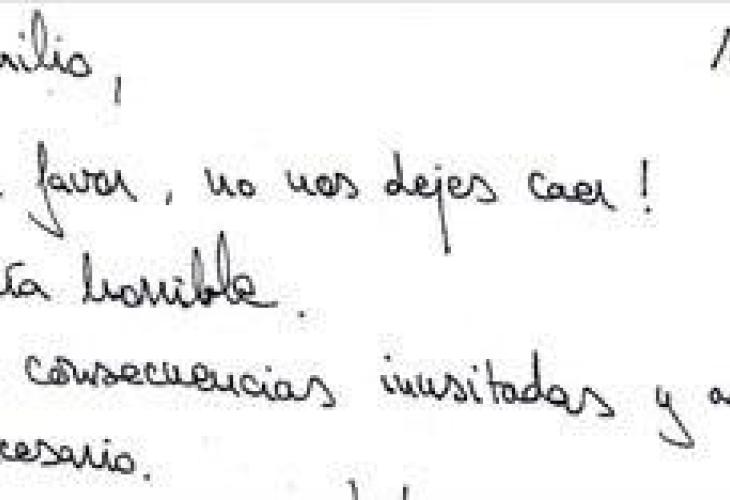 milio,
favor, no nos dejes caer!
ía horrible.
consecuencias inusitadas y a
cesario.